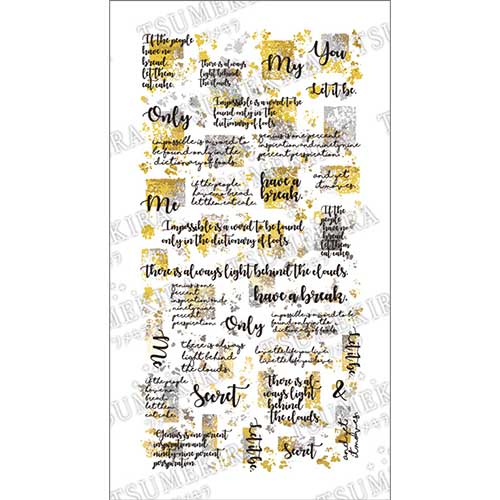 TSUMEKIRA
If the people
have no
bread,
let them
eat cake.
There is always
light behind
the clouds.
My
You
Let it be.
Only
Impossible is a word to be
found only in the
dictionary of fools.
impossible is a word to
be found only in the
dictionary of fools.
genius is one percent
inspiration and ninety nine
percent perspiration.
Me
if the people
have no bread,
let them eat cake.
have a
break.
and yet
it moves.
Impossible is a word to be found
only in the dictionary of fools.
If the
people
have no
bread,
let them
eat cake.
There is always light behind the clouds.
genius is one
percent
inspiration and
ninety nine
percent
perspiration.
have a break.
Only
impossible is a word to be
found only in the
dictionary of fools.
Me
there is always
light behind
the clouds.
love the life you live.
live the life you love.
Let it be.
if the people
have no
bread,
let them
eat cake.
Secret
There is al
ways light
behind
the clouds.
&
and yet
it moves.
Genius is one percent
inspiration and
ninety-nine percent
perspiration.
Let it be.
Secret